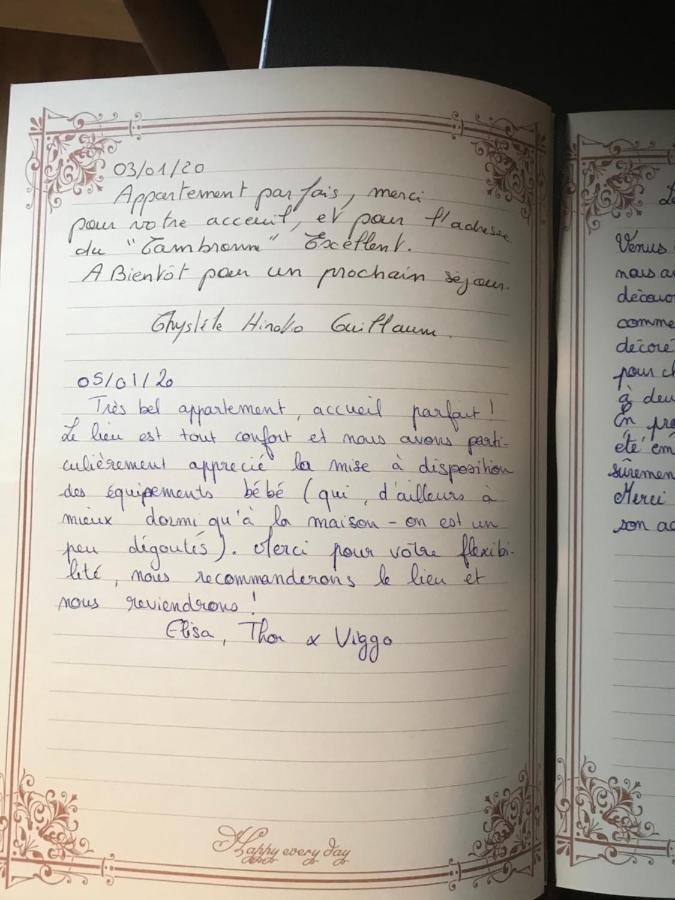 03/01/20
Appartement parfais, merci
pour votre acceuil, et pour l'adresse
du "Cambronne" Excellent.
A Bientôt pour un prochain séjour.
Hinoko Guillaume.
05/01/20
Très bel appartement, accueil parfait!
Le lieu est tout confort et nous avons parti-
culièrement apprecié la mise à disposition
des équipements bébé (qui, d'ailleurs à
mieux dormi qu'à la maison - on est un
peu dégoutés). Merci pour votre flexibi-
lité, nous recommanderons le lieu et
nous reviendrons!
Elisa, Thor & Viggo
Happy every day
Venus
nous a
décou
comme
décore
pour c
à deu
En pro
été em
sûremen
Merci
son ac